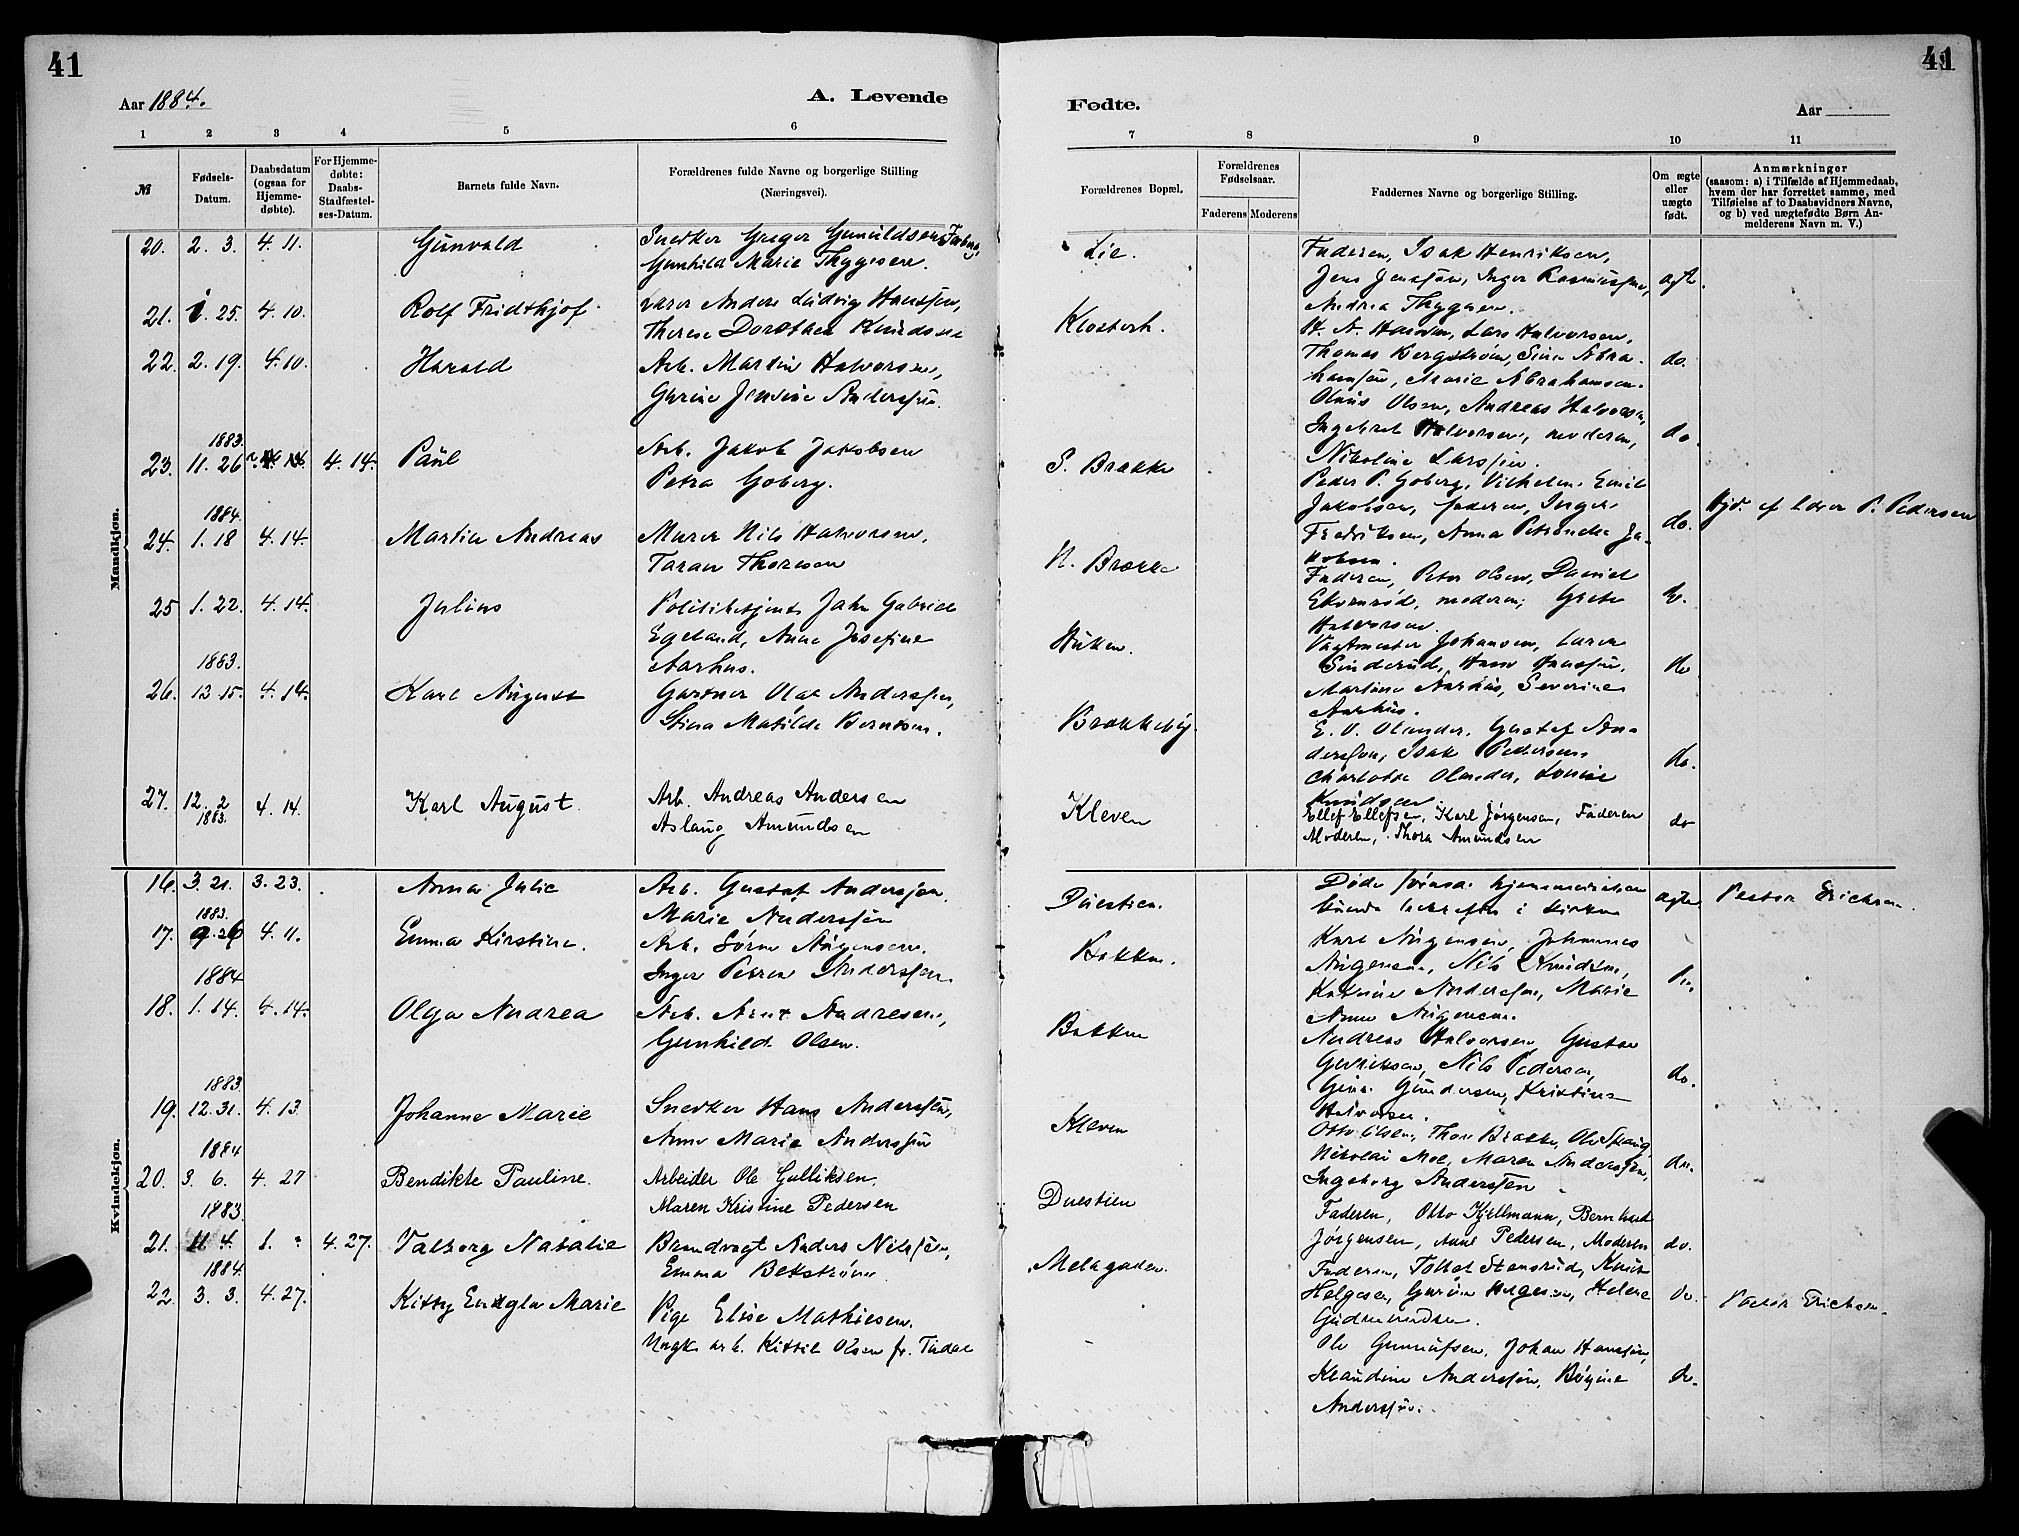 41
41
Aar 1884.
A. Levende
Fødte.
Aar
1 2 3 4 5 6
7 8 9 10 11
№
Fødsels-
Datum.
Daabsdatum
(ogsaa for
Hjemme-
døbte).
For Hjemme-
døbte:
Daabs-
Stadfæstel-
ses-Datum.
Barnets fulde Navn.
Forældrenes fulde Navne og borgerlige Stilling
(Næringsvei).
Forældrenes Bopæl.
Forældrenes
Fødselsaar.
Faderens Moderens
Faddernes Navne og borgerlige Stilling.
Om ægte
eller
uægte
født.
Anmærkninger
(saasom: a) i Tilfælde af Hjemmedaab,
hvem der har forrettet samme, med
Tilføielse af to Daabsvidners Navne,
og b) ved uægtefødte Børn An-
melderens Navn m. V.)
Mandkjøn.
20. 2. 3. 4. 11. Gunvald
Snedker Greger
Gunhild Marie Thygesen.
Lie.
Faderen, Isak Henriksen,
Jens Jenssøn, Inger
Andrea Thygesen.
21. 1. 25. 4. 10. Rolf Fridthjof
Anders Ludvig Hanssøn,
Therese Dorothea Knudsen
Klosterh.
Lars Halvorsen,
Thomas Bergstrøm, Sina Abra-
hamsøn, Marie Abrahamsen.
do.
22. 2. 19. 4. 10. Harald
Arb. Martin Halvorsen,
Gurine Jensine Anderssøn.
Olaus Olsen, Andreas Halvorsen,
Ingebret Halvorsen, moderen,
Nikoline Larssøn.
do.
1883.
23. 11. 26 4. 14. Paul
Arb. Jakob Jakobsen
Petra Goberg.
S. Brække
Peder P. Goberg, Vilhelm Emil
Jakobsen, faderen, Inger
Fredriksen, Anna Petronelle Ja-
kobsen.
do.
Hjd. af Lærer P. Pedersen
1884.
24. 1. 18 4. 14. Martin Andreas
Murer Nils Halvorsen,
Taran Thoresen
N. Brække
Faderen, Peter Olsen, Daniel
moderen, Grete
Halvorsen.
25 1. 22. 4. 14. Julius
Politibetjent Jahn Gabriel
Egeland, Anna Josefine
Aarhus.
Vagtmester Johansen, Lærer
Hans Hanssøn,
Martine Aarhus, Severine
Aarhus.
do
1883.
26. 12 15. 4. 14. Karl August
Gartner Olof Anderssøn,
Stina Matilda Berntson.
Brækkeby
E. V. Olander, Gustaf An-
derssøn, Isak Pedersen
Charlotte Olander, Louise
Knudsen
do.
27. 12. 2 4. 14.
1883.
Karl August.
Arb. Andreas Andersen
Aslaug Amundsen
Kleven
Ellef Ellefsen, Karl Jørgensen, Faderen
Moderen, Thora Amundsen
do
Kvindekjøn.
16. 3. 21. 3. 23. Anna Julie
Arb. Gustaf Anderssøn.
Marie Anderssøn
Duestien.
Døde
i kirken
ægte
Pastor Erichsen.
1883.
17. 9. 26 4. 11. Emma Kirstine.
Arb. Sørn Aagensen.
Inger Petrea Anderssøn.
Bakken.
Karl Aagensen, Johannes
Aagensen, Nils Knudsen,
Katrine Anderssøn, Marie
Anne Aagensen.
1884
18. 1. 14. 4. 14. Olga Andrea
Arb. Arnt Andresen,
Gunhild Olsen.
Bakken
Andreas Halvorsen, Gustav
Nils Pedersen,
Gina Gundersen, Kristine
Halvorsen.
do.
1883.
19. 12. 31. 4. 13. Johanne Marie
Snedker Hans Anderssøn,
Anne Marie Anderssøn
Kleven
Otto Olsen, Thor Brække, Ole
Nikolai Moe, Maren Anderssøn,
Ingeborg Anderssøn
do.
1884
20. 3. 6. 4. 27 Bendikte Pauline.
Arbeider Ole Gulliksen.
Maren Kristine Pedersen
Duestien
Faderen, Otto Kjellmann, Bernhard
Jørgensen, Anne Pedersen, Moderen
do.
1883
21. 11 4. 1. 4. 27. Valborg Natalie
Brandvagt Anders Nilssøn,
Emma Bekstrøm.
Melagaden.
Faderen, Tollef Stensrud, Knut
Helgesen, Helene
Gudmundsen.
do.
1884.
22. 3. 3. 4. 27. Kitty Marie
Pige Elise Mathisen.
Ungk. arb. Kittil Olsen fr. Tindal
Pastor Erichsen.
Ole Johan Hanssøn,
Klaudine Anderssøn,
Anderssøn.
do.